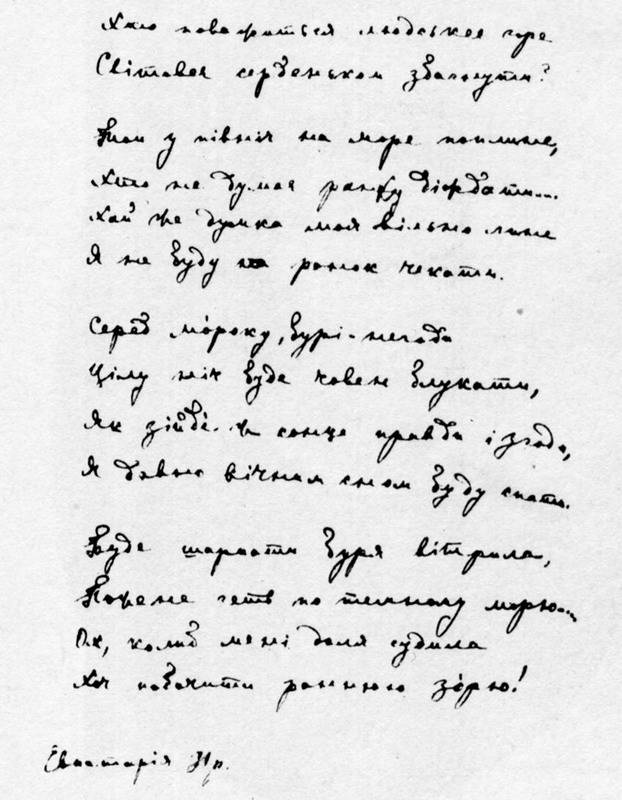 Хто поважиться людськеє горе
Світовеє серденьком збагнути?
Той у північ на море поплине,
Хто не думає ранку діждати....
Хай же думка моя вільно лине
Я не буду на ранок чекати.
Серед мо́року, бурі-негоди
Цілу ніч буде човен блукати,
Як зійде́ ж сонце правди і згоди,
Я давно вічним сном буду спати.
Буде шарпати буря вітрила,
Пожене геть по темному морю....
Ох, колиб мені доля судила
Хоч побачити раннюю зо́рю!
Євпаторія 91р.